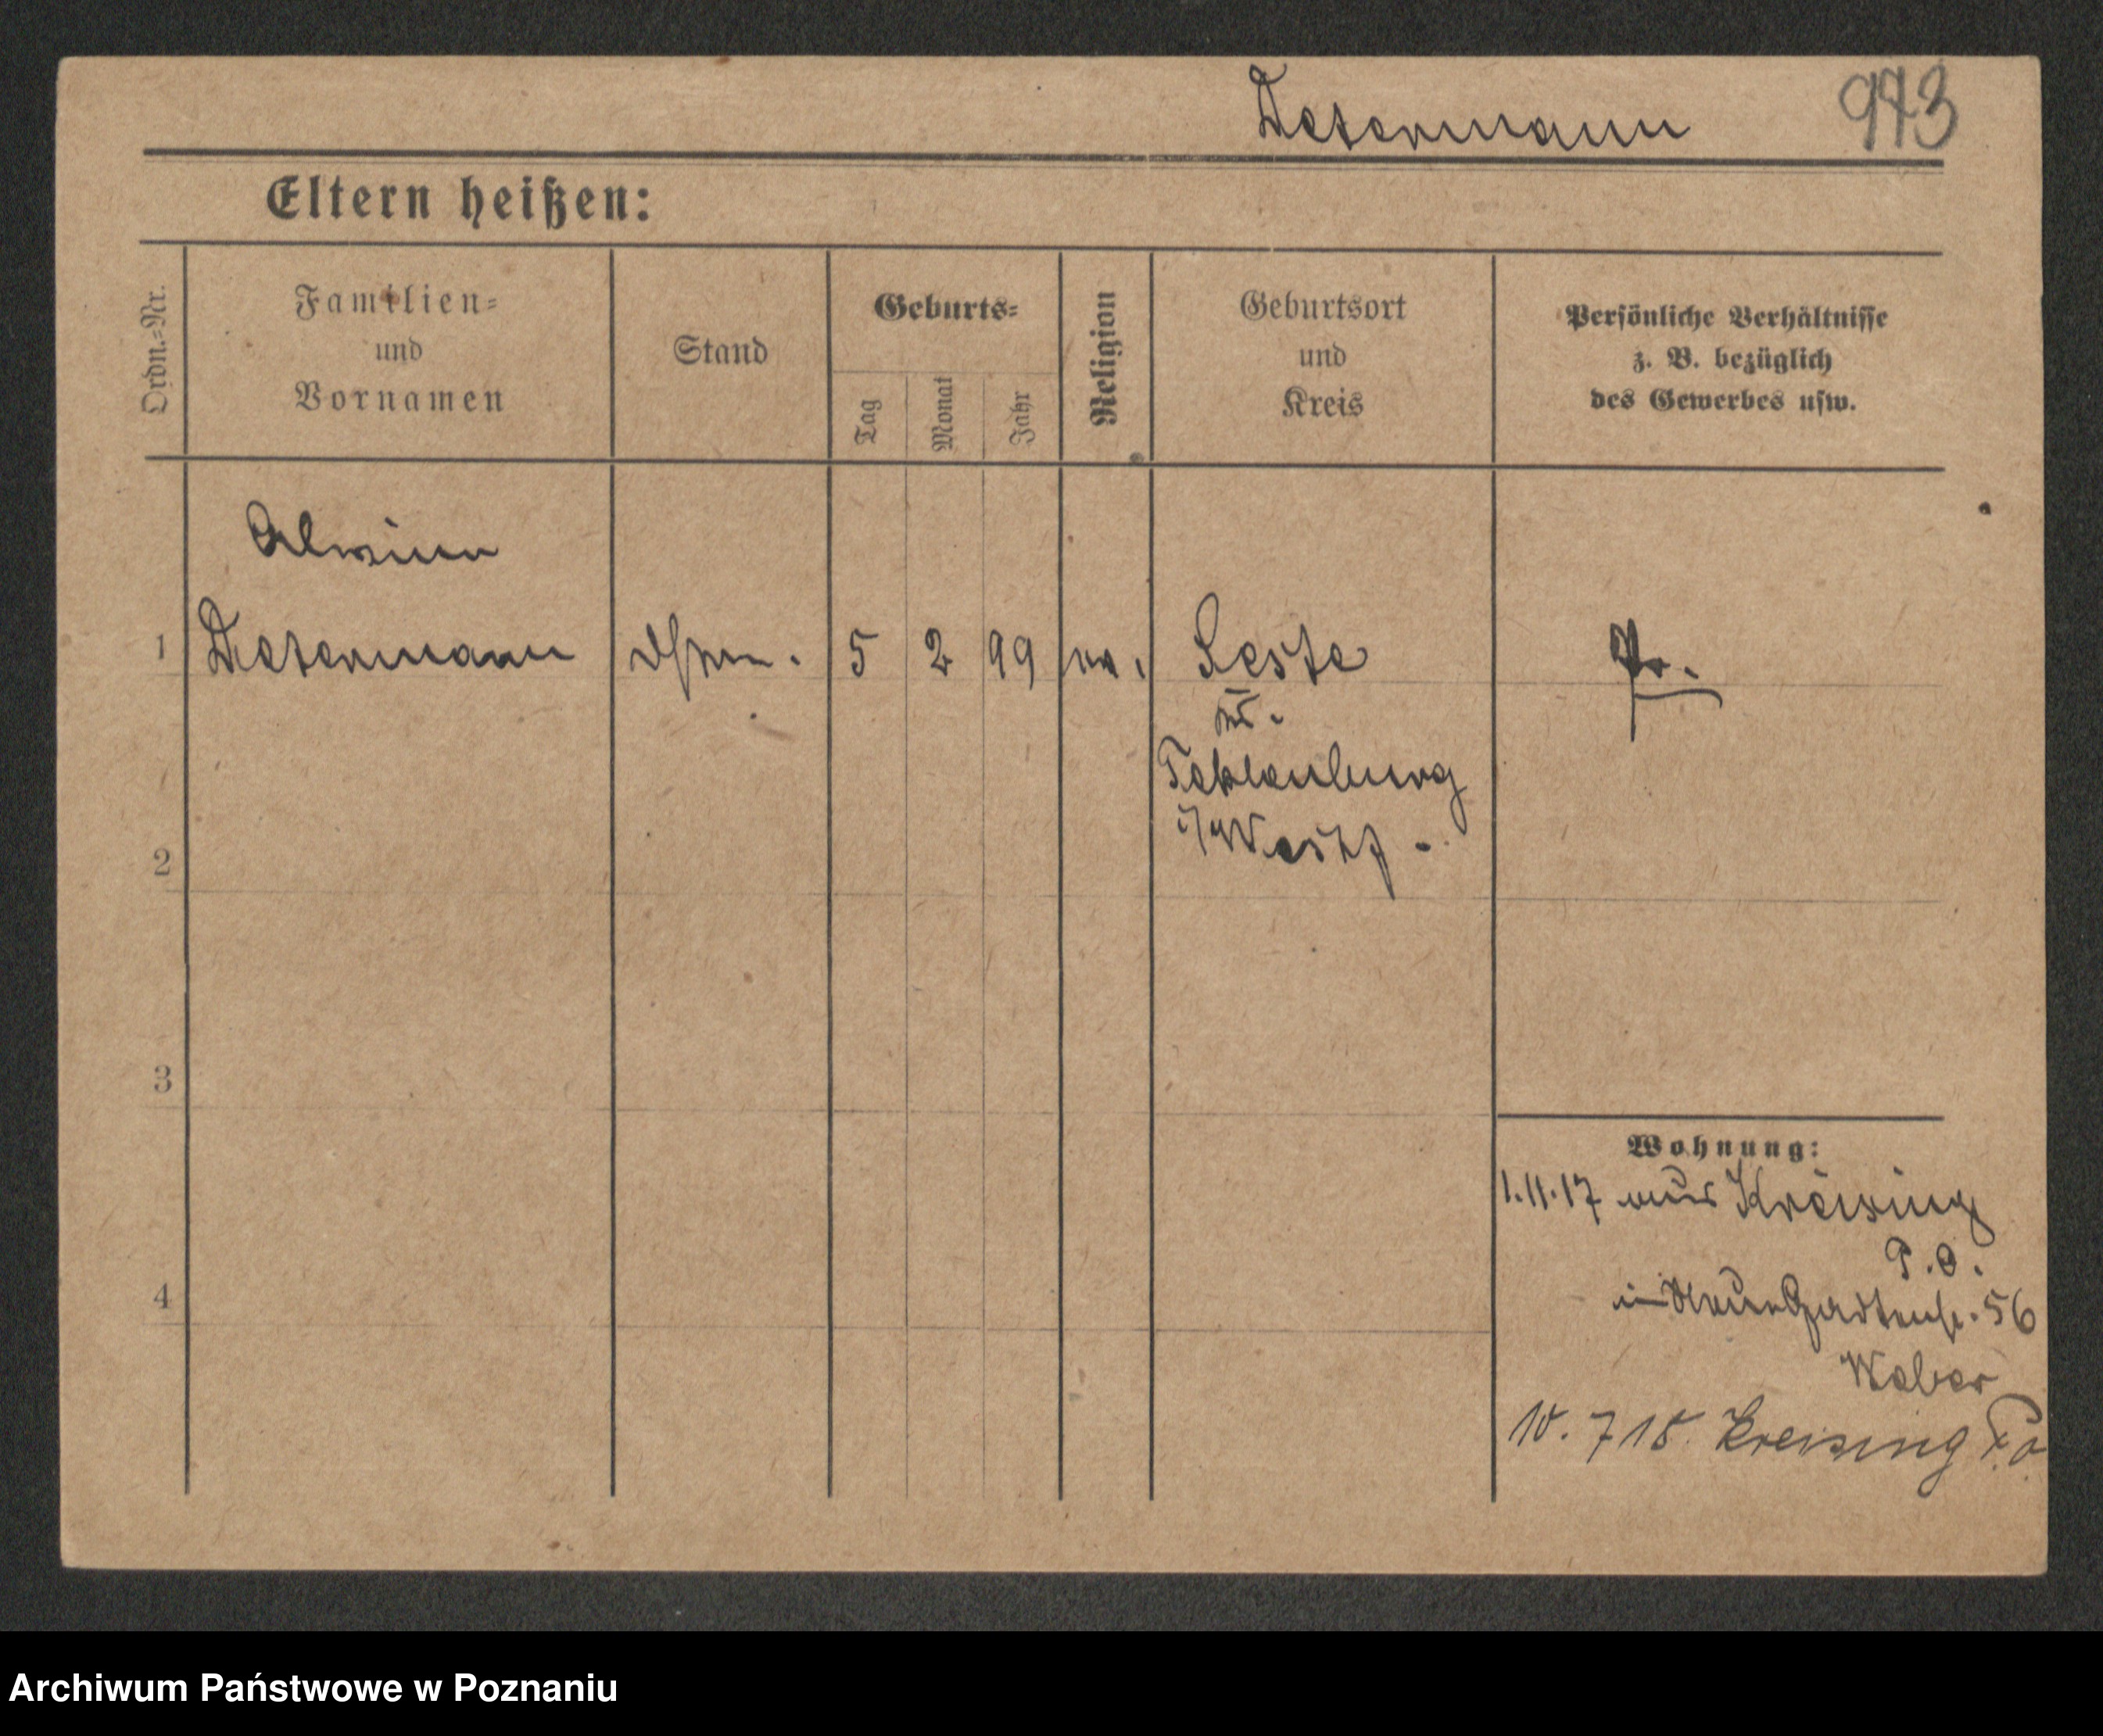 Determann 943
Eltern heißen:
Ordn.=Nr.
Familien=
und
Vornamen
Stand
Geburts=
Tag
Monat
Jahr
Religion
Geburtsort
und
Kreis
Persönliche Verhältnisse
z. B. bezüglich
des Gewerbes usw.
Alwine
1 Determann 5 2 99 ev. Leste Pr.
Kr.
Tecklenburg
i/Westf.
2
3
4
Wohnung:
1.11.17 aus Kreising
P.O.
Gartenstr. 56
Weber
10. 7 18. Kreising P.O.
Archiwum Państwowe w Poznaniu